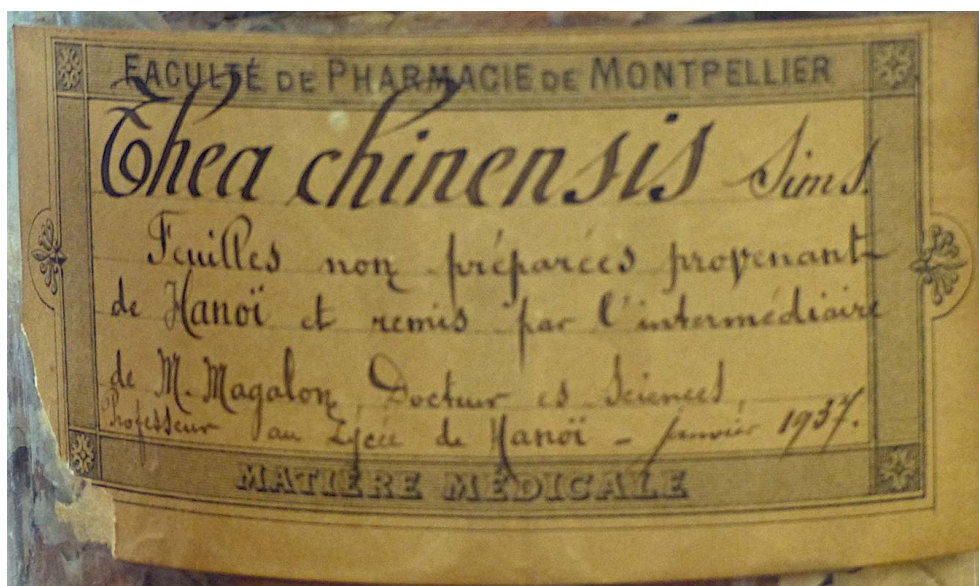 FACULTÉ DE PHARMACIE DE MONTPELLIER
Thea chinensis Sims.
Feuilles non préparées provenant
de Hanoï et remis par l'intermédiaire
de M. Magalon, Docteur es Sciences,
Professeur au Lycée de Hanoï – janvier 1937.
MATIÈRE MÉDICALE